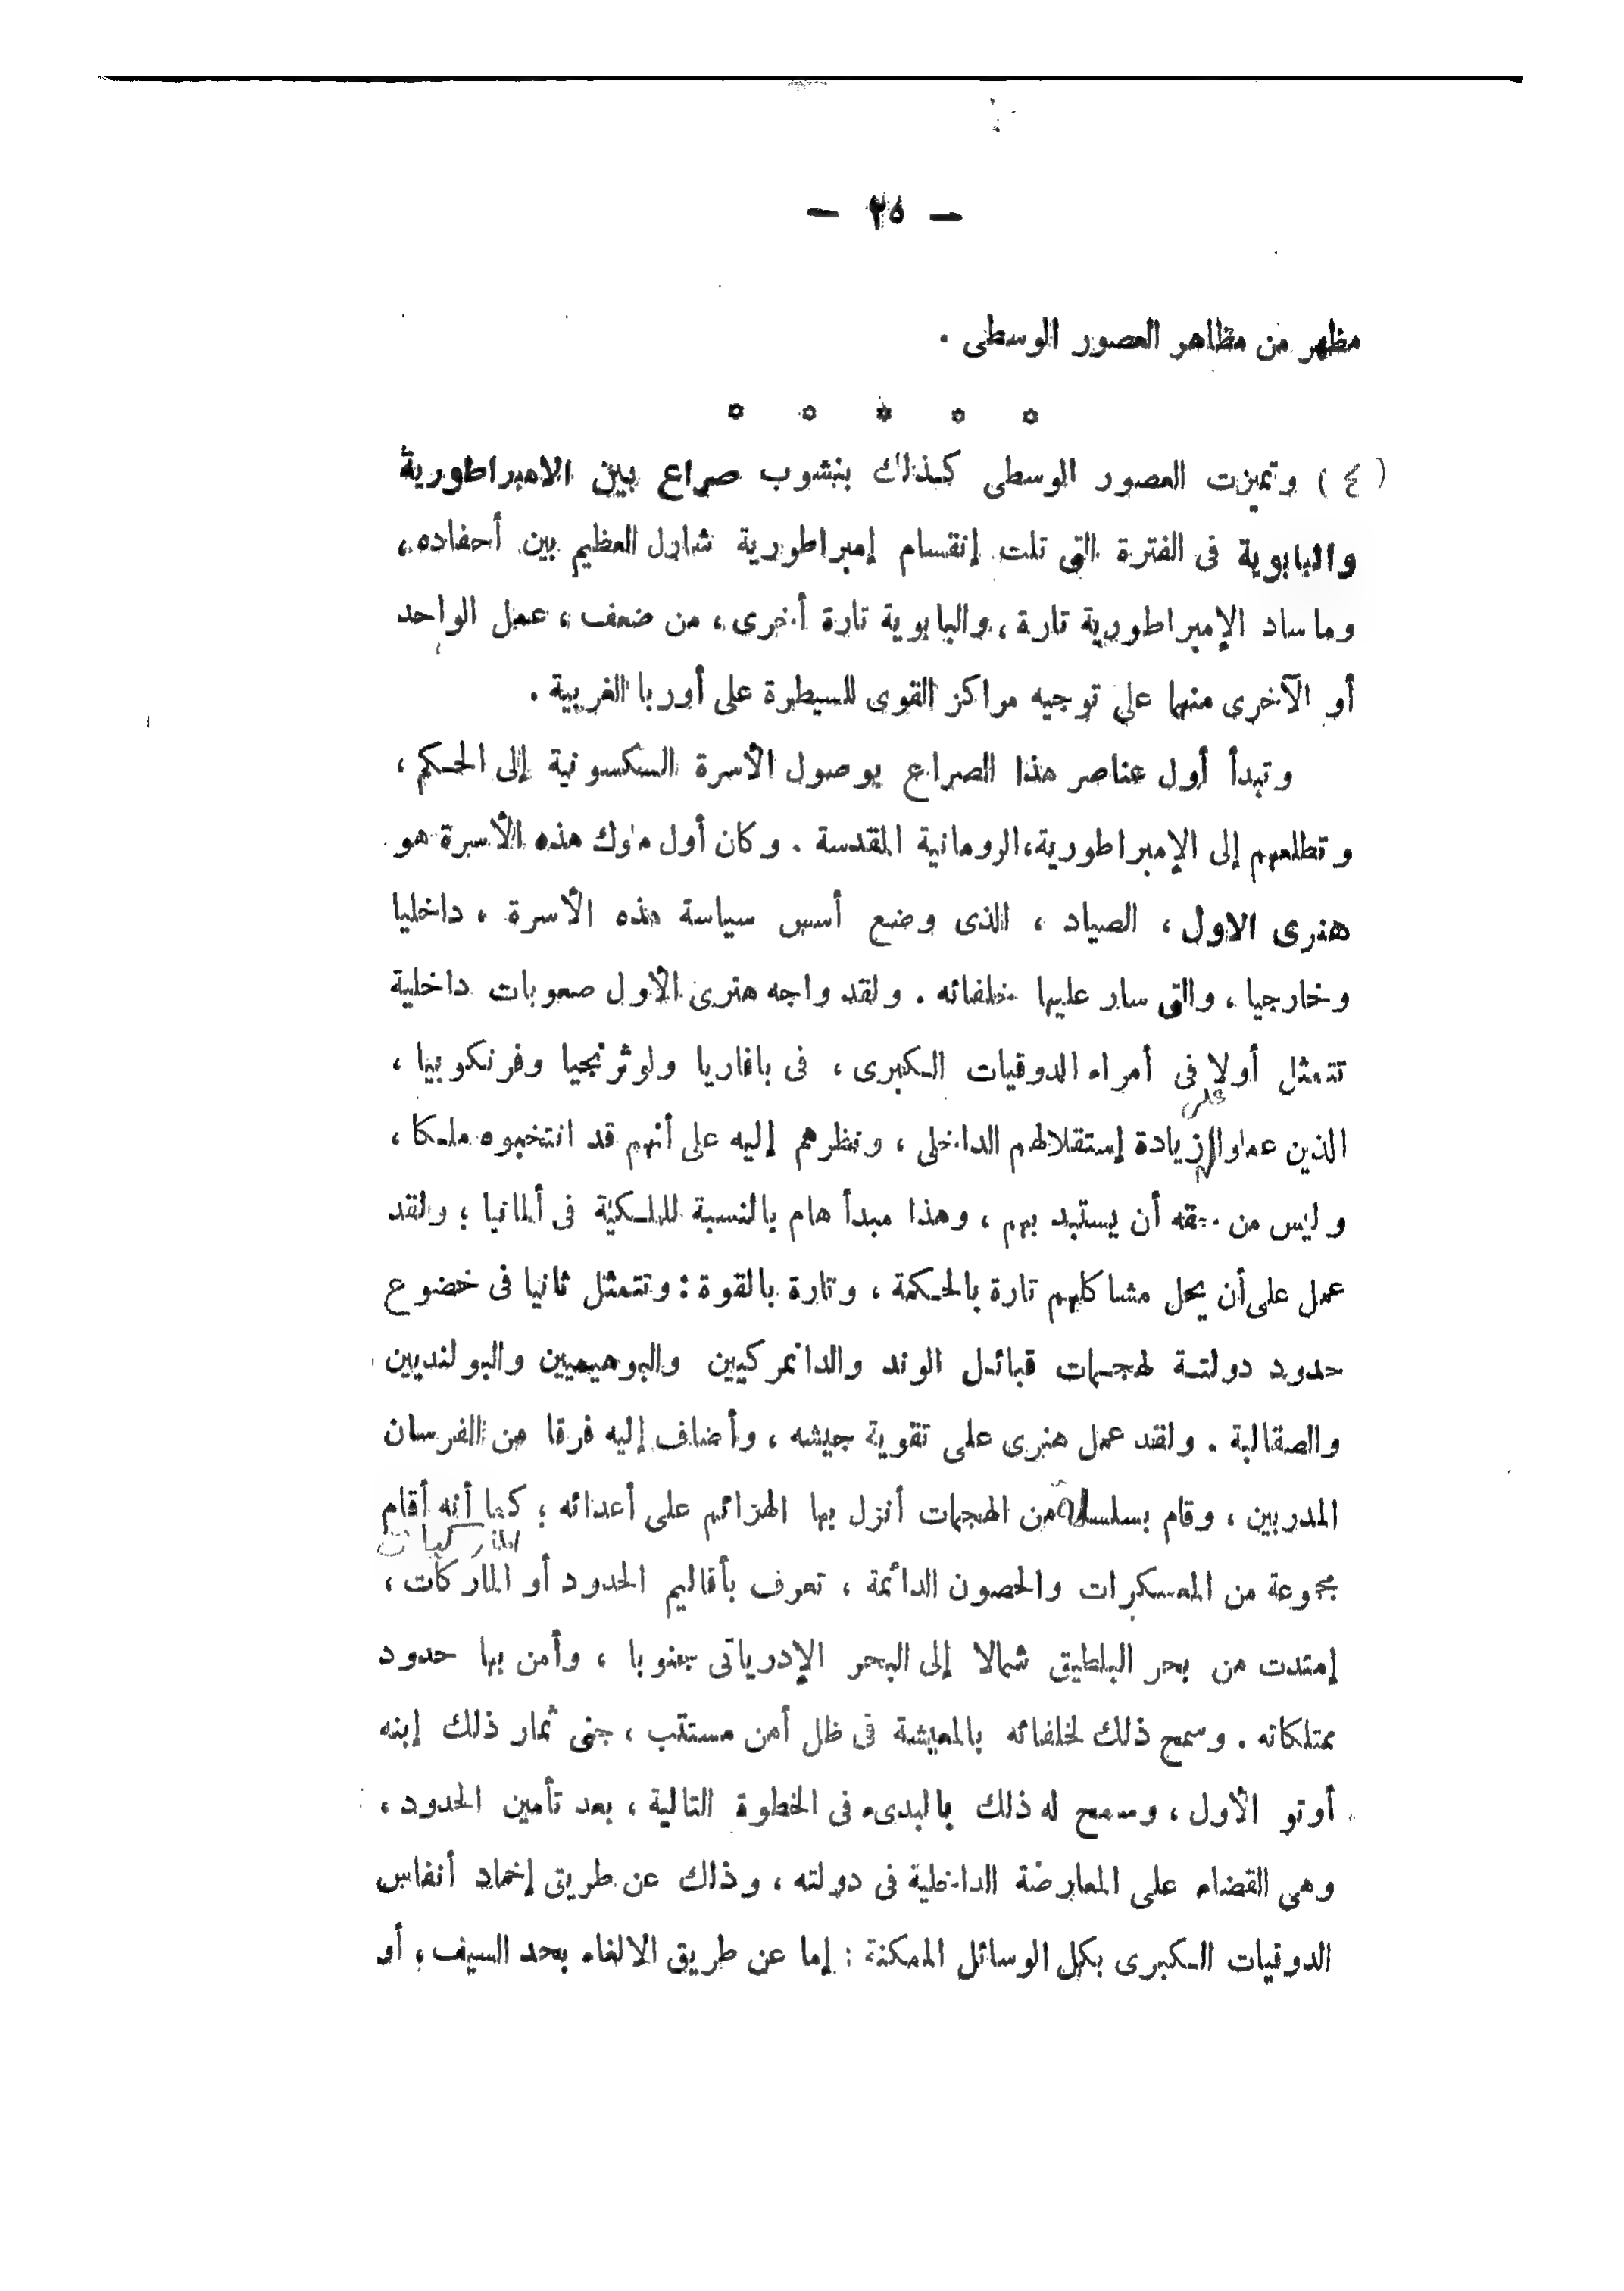 — ٢٥ —
مظهر من مظاهر العصور الوسطى .
* * * * *
( ٤ ) وتميزت العصور الوسطى كذلك بنشوب صراع بين الامبراطورية
والبابوية فى الفترة التى تلت إنقسام إمبراطورية شارل العظيم بين أحفاده ،
وما ساد الإمبراطورية تارة ، والبابوية تارة أخرى ، من ضعف ، عمل الواحد
أو الآخرى منهما على توجيه مراكز القوى للسيطرة على أوربا الغربية .
وتبدأ أول عناصر هذا الصراع بوصول الأسرة السكسونية إلى الحكم ،
وتطلعهم إلى الإمبراطورية ، الرومانية المقدسة . وكان أول ملوك هذه الأسرة هو
هنرى الاول ، الصياد ، الذى وضع أسس سياسة هذه الأسرة ، داخليا
وخارجيا ، والتى سار عليها خلفائه . ولقد واجه هنرى الأول صعوبات داخلية
تتمثل أولا فى أمراء الدوقيات الكبرى ، فى بافاريا ولوثرنجيا وفرنكوبيا ،
على
الذين عملوا لزيادة إستقلالهم الداخلى ، ونظرهم إليه على أنهم قد انتخبوه ملكا ،
وليس من حقه أن يستبد بهم ، وهذا مبدأ هام بالنسبة للملكية فى ألمانيا ؛ ولقد
عمل على أن يحل مشاكلهم تارة بالحكمة ، وتارة بالقوة : وتتمثل ثانيا فى خضوع
حدود دولتة لهجمات قبائل الوند والدانمركيين والبوهيميين والبولنديين
والصقالبة . ولقد عمل هنرى على تقوية جيشه ، وأضاف إليه فرقا من الفرسان
المدربين ، وقام بسلسلة من الهجمات أنزل بها الهزائم على أعدائه ؛ كما أنه أقام
الماركيات
مجموعة من المعسكرات والحصون الدائمة ، تعرف بأقاليم الحدود أو الماركات ،
إمتدت من بحر البلطيق شمالا إلى البحر الإدرياتى جنوبا ، وأمن بها حدود
ممتلكاته . وسمح ذلك لخلفائه بالمعيشة فى ظل أمن مستتب ، جنى ثمار ذلك إبنه
أوتو الأول ، وسمح له ذلك بالبدىء فى الخطوة التالية ، بعد تأمين الحدود ،
وهى القضاء على المعارضة الداخلية فى دولته ، وذلك عن طريق إخماد أنفاس
الدوقيات الكبرى بكل الوسائل الممكنة : إما عن طريق الالغاء بحد السيف ، أو